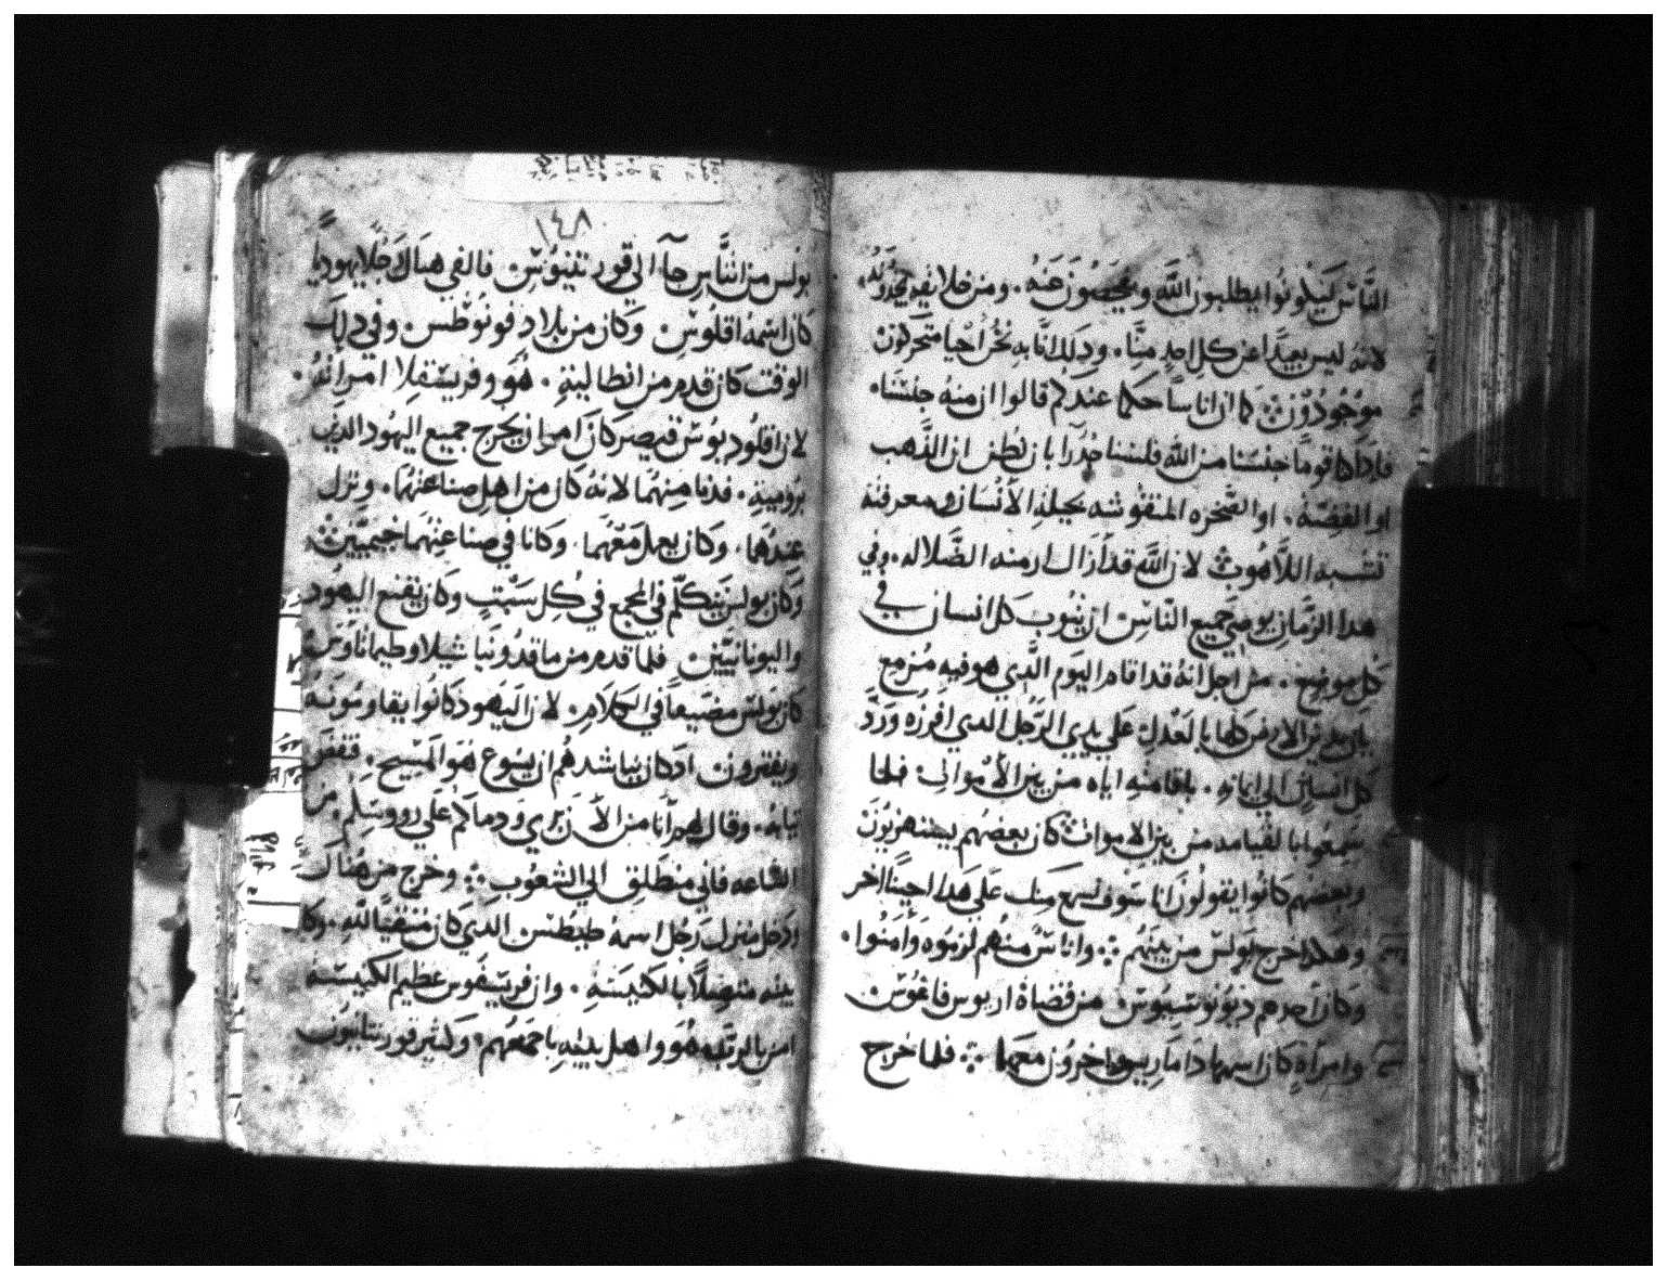 النَّاسْ ليَكُونُوا يطلبون اللَّه ويفحصُون عَنهُ. ومن خلايقه يجدُونهُ
لانهُ ليس بعيدًا عن كل احدٍ منَّا. ودلك انَّا به نَحْن احيا متحركون
موُجُودُوْن كما ان اناسًا حكما عندكم قالوا ان منه جنْسنَا.
فادا كنا قومًا جنْسنا من اللَّه فلسْنا جُدرآ بان نُظن ان الذَّهب
او الفضّة. او الصَّخره المنقوشه بحيلة الأنْسان ومعرفته
تشبه اللَّاهُوت لان اللَّه قد أزال ازمنه الضَّلاله. وفي
هدا الزَّمان يوصِي جميع النَّاسْ ان يتُوب كل انسان في
كُل موضع. من اجل انهُ قد اقام اليوم الَّدِي هو فيه مُزمع
بان يدين الارض كلها بالعَدْل عَلي يدي الرَّجُل الدي افرزه وَردَّ
كل انسانٍ الي ايمانهِ. باقامتهِ اياه من بين الأموات. فلما
سَمِعُوا بالقيامه من بين الاموات كان بعضهُم يستهزيُون
وبعضهُم كانُوا يقولُون انا سَوف نسمع منك عَلي هَدا حينًا اخر
وهكدا خرج بَولسْ من بينَهُم وَاناسٌ منهُم لزمُوه وأمنُوا.
وكان احدهم ديونُوسْيُوسْ من قضاة اريوس فاغوْسْ
وامراةٍ كان اسمها دَامَاريس واخرون معهما فلما خرج
١٤٨
بولس من اثنَّاس جآ الي قورنتيُوسْ. فالفي هناك رَجُلًا يهوديًا
كان اسْمهُ اقلُوسْ وكان من بلاد فونُوطْس. وفي دلك
الوقت كان قدم من انطالية. هُو وفريسْقلا امراتهُ.
لان اقلُوديُوسْ قيصر كان امر ان يخرج جميع اليهُود الدين
برُومية. فدنا منهُما لانهُ كان من اهل صناعتهُما. ونزل
عِندهُما. وكان يعمل مَعْهُما. وكانا في صناعتهُما خيميَّين
وكان بولس يَتكلَّم في المجمع في كُل سَبْتٍ وكان يقنع اليهُود
واليونانيّين فلما قدم من ماقدُونيا شيلا وطيماثاوُسْ
كان بَولسْ مضيّعًا في الكلام. لان اليَهُود كانُوا يقاومُونهُ
ويفترون ادكان يناشدهُم ان يسُوع هُو المسِيح. فنفض
ثيابهُ. وقال لهم انا من الأن بَري ودماكم عَلي رووسَكم. من
السَّاعه فاني منطلق الي الشعُوب وخرج من هُناك
ودخل منزل رَجُل اسمهُ طيطُسْ الدي كان متقيًا للَّهِ. وكا
بيته متصلًا بالكنيسَة. وان فريسْفوس عظيم الكنيسْة
امن بالربّ هُو واهل بيتهِ باجمعهُم. وكثير قورنتانيُون